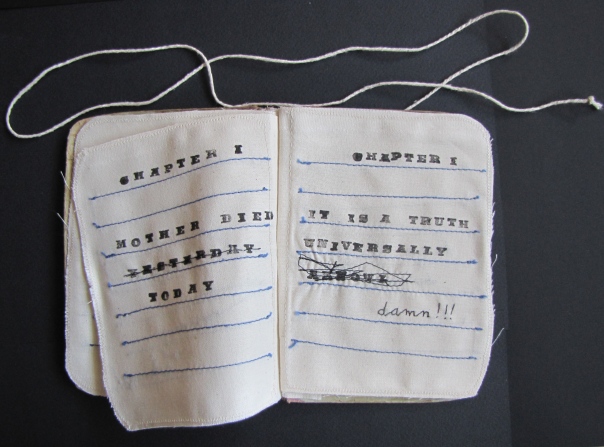 CHAPTER I
MOTHER DIED
YESTERDAY
TODAY
CHAPTER I
IT IS A TRUTH
UNIVERSALLY
damn!!!